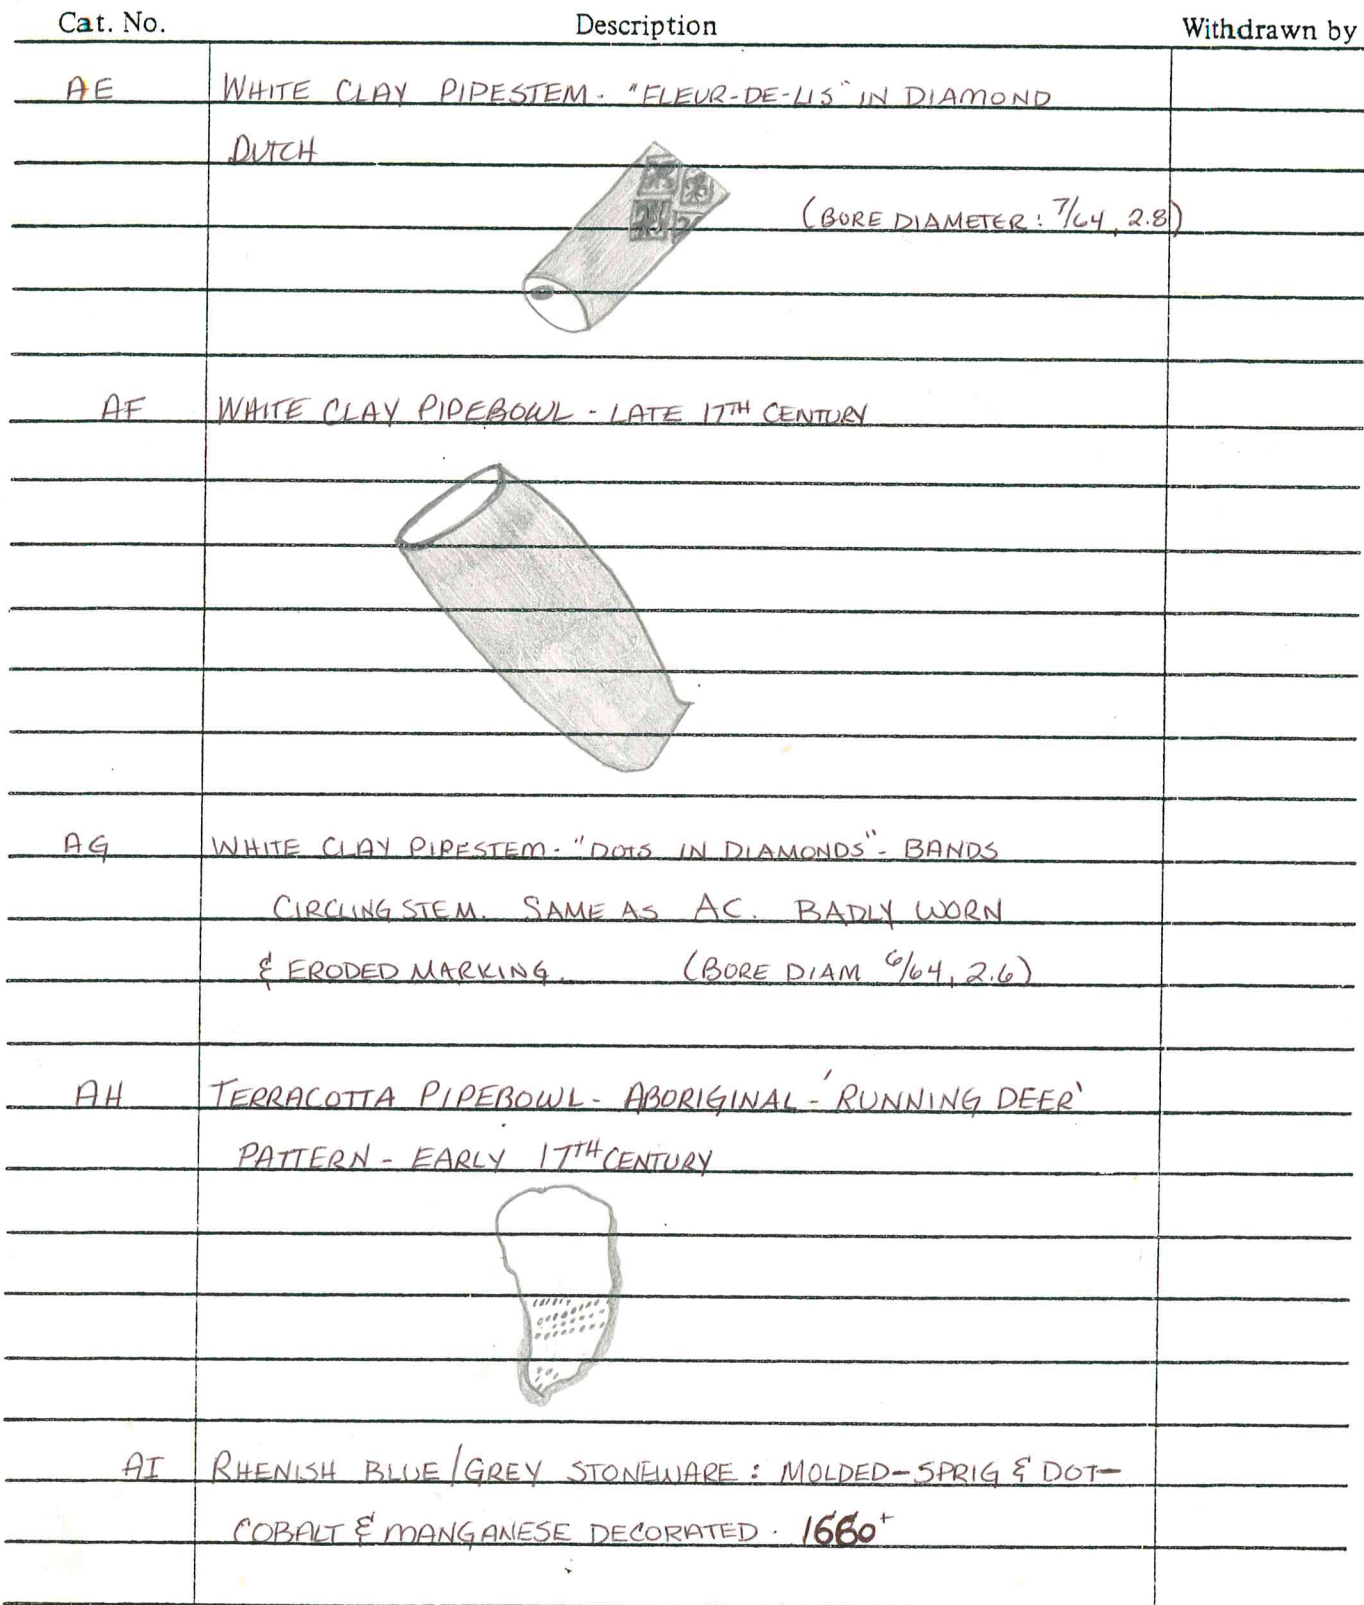 Cat. No. Description Withdrawn by
AE WHITE CLAY PIPESTEM - "FLEUR-DE-LIS" IN DIAMOND
DUTCH
(BORE DIAMETER: 7/64, 2.8)
AF WHITE CLAY PIPEBOWL - LATE 17TH CENTURY
AG WHITE CLAY PIPESTEM - "DOTS IN DIAMONDS" - BANDS
CIRCLING STEM. SAME AS AC. BADLY WORN
& ERODED MARKING. (BORE DIAM 6/64, 2.6)
AH TERRACOTTA PIPEBOWL - ABORIGINAL - 'RUNNING DEER'
PATTERN - EARLY 17TH CENTURY
AI RHENISH BLUE/GREY STONEWARE: MOLDED-SPRIG & DOT-
COBALT & MANGANESE DECORATED. 1660+